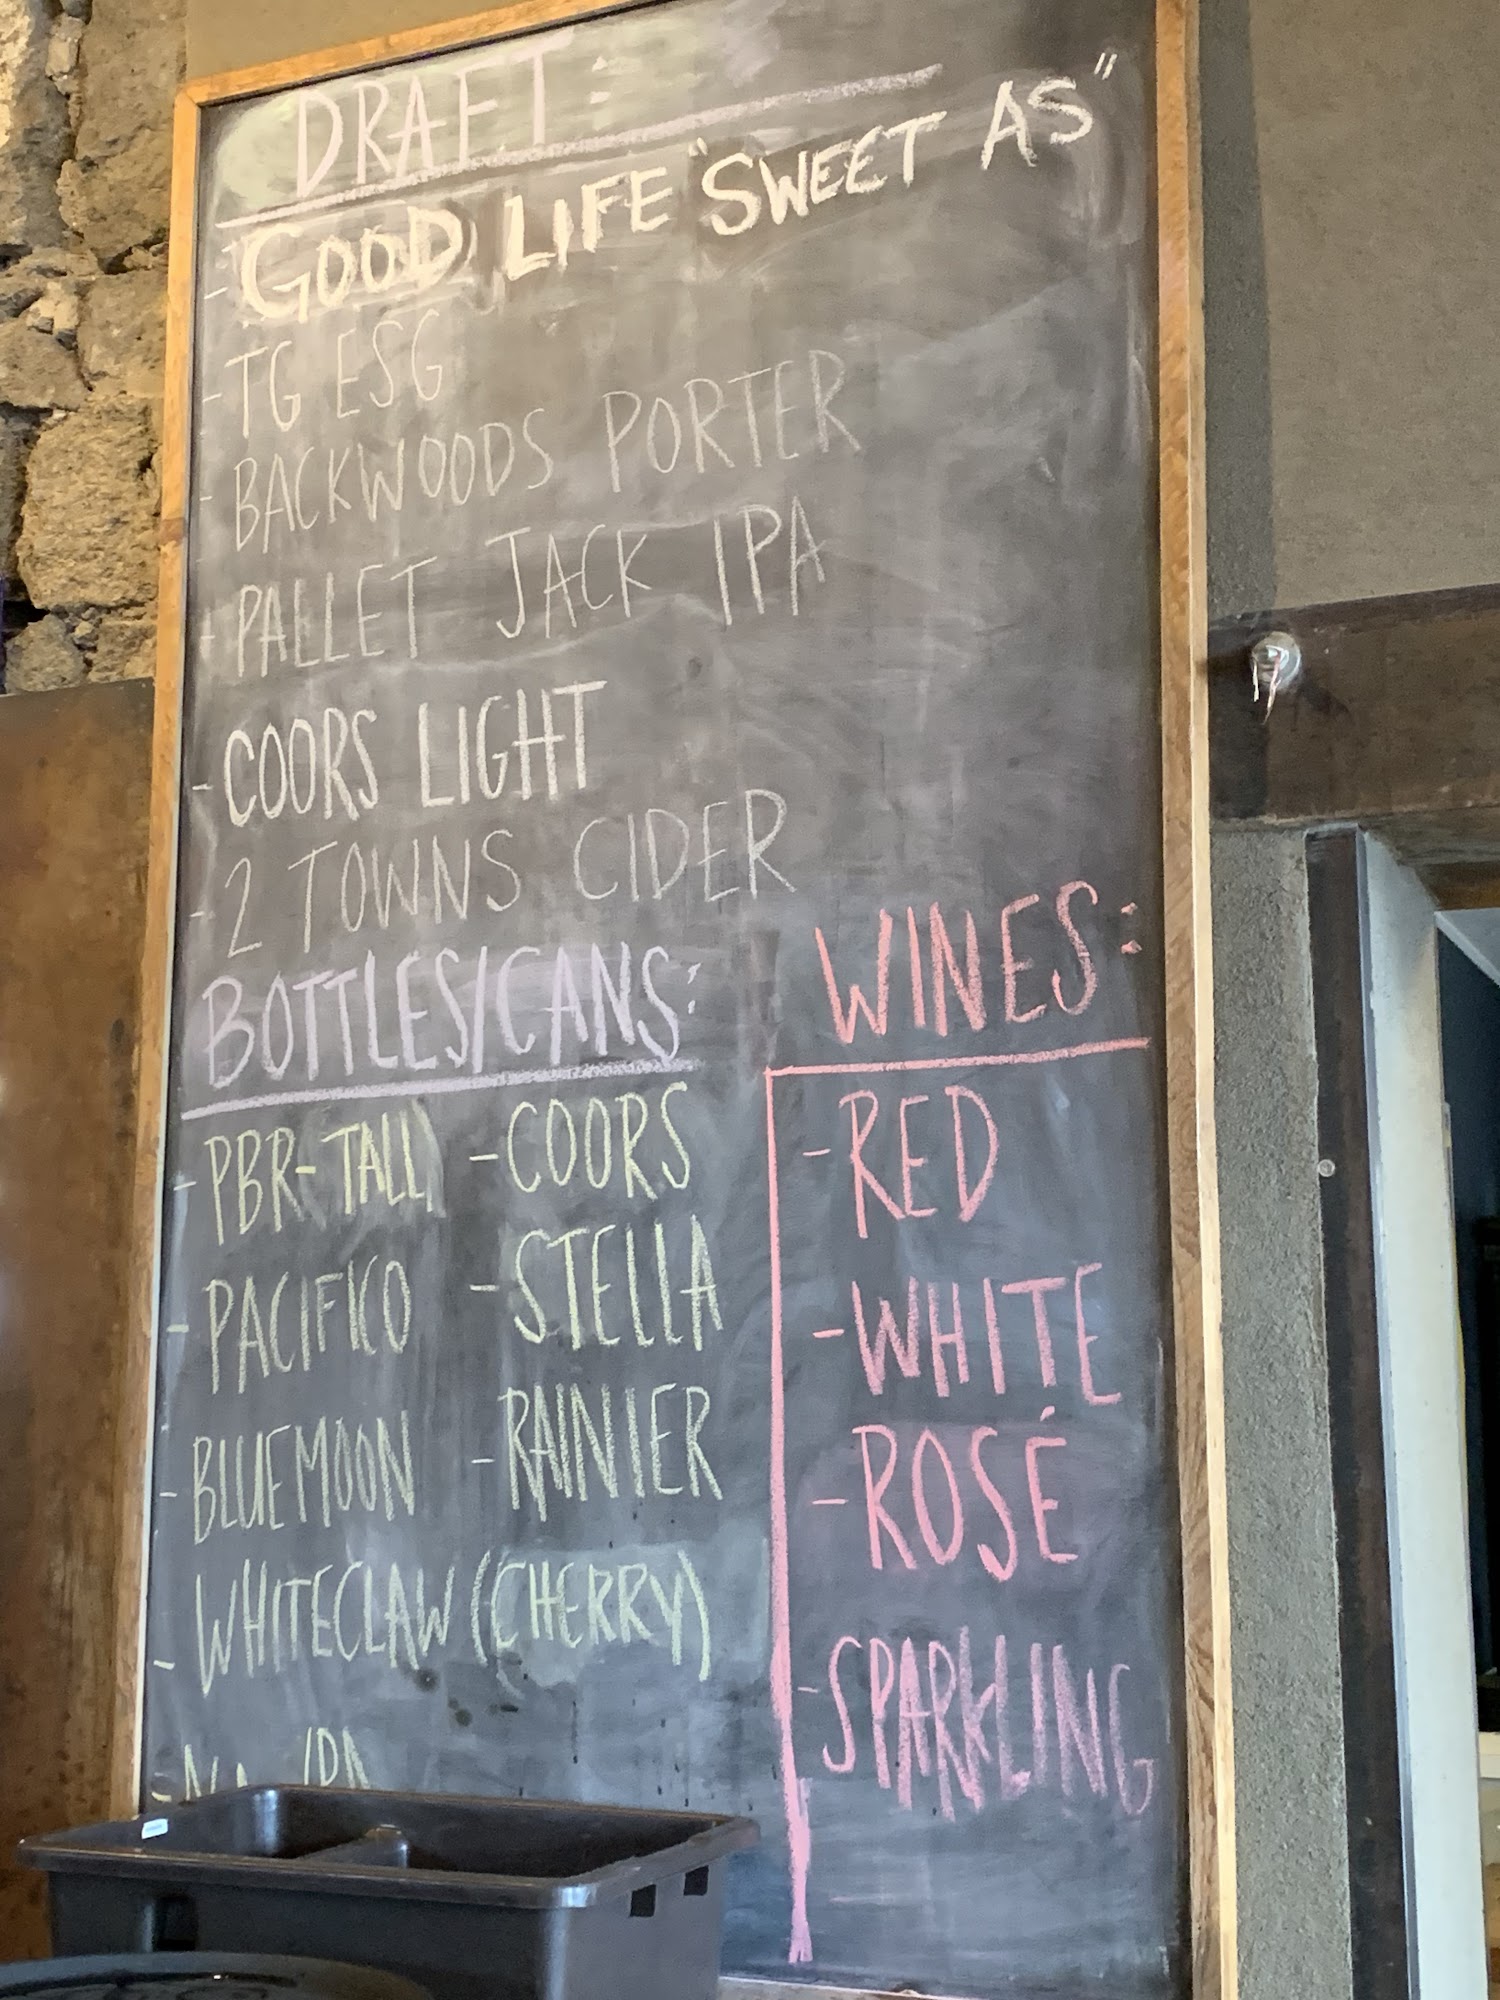 DRAFT:
- GOOD LIFE "SWEET AS"
- TG ESG
- BACKWOODS PORTER
- PALLET JACK IPA
- COORS LIGHT
- 2 TOWNS CIDER
BOTTLES/CANS:
- PBR-TALL
- COORS
- PACIFICO
- STELLA
- BLUEMOON
- RAINIER
- WHITECLAW (CHERRY)
IPA
WINES:
- RED
- WHITE
- ROSÉ
- SPARKLING